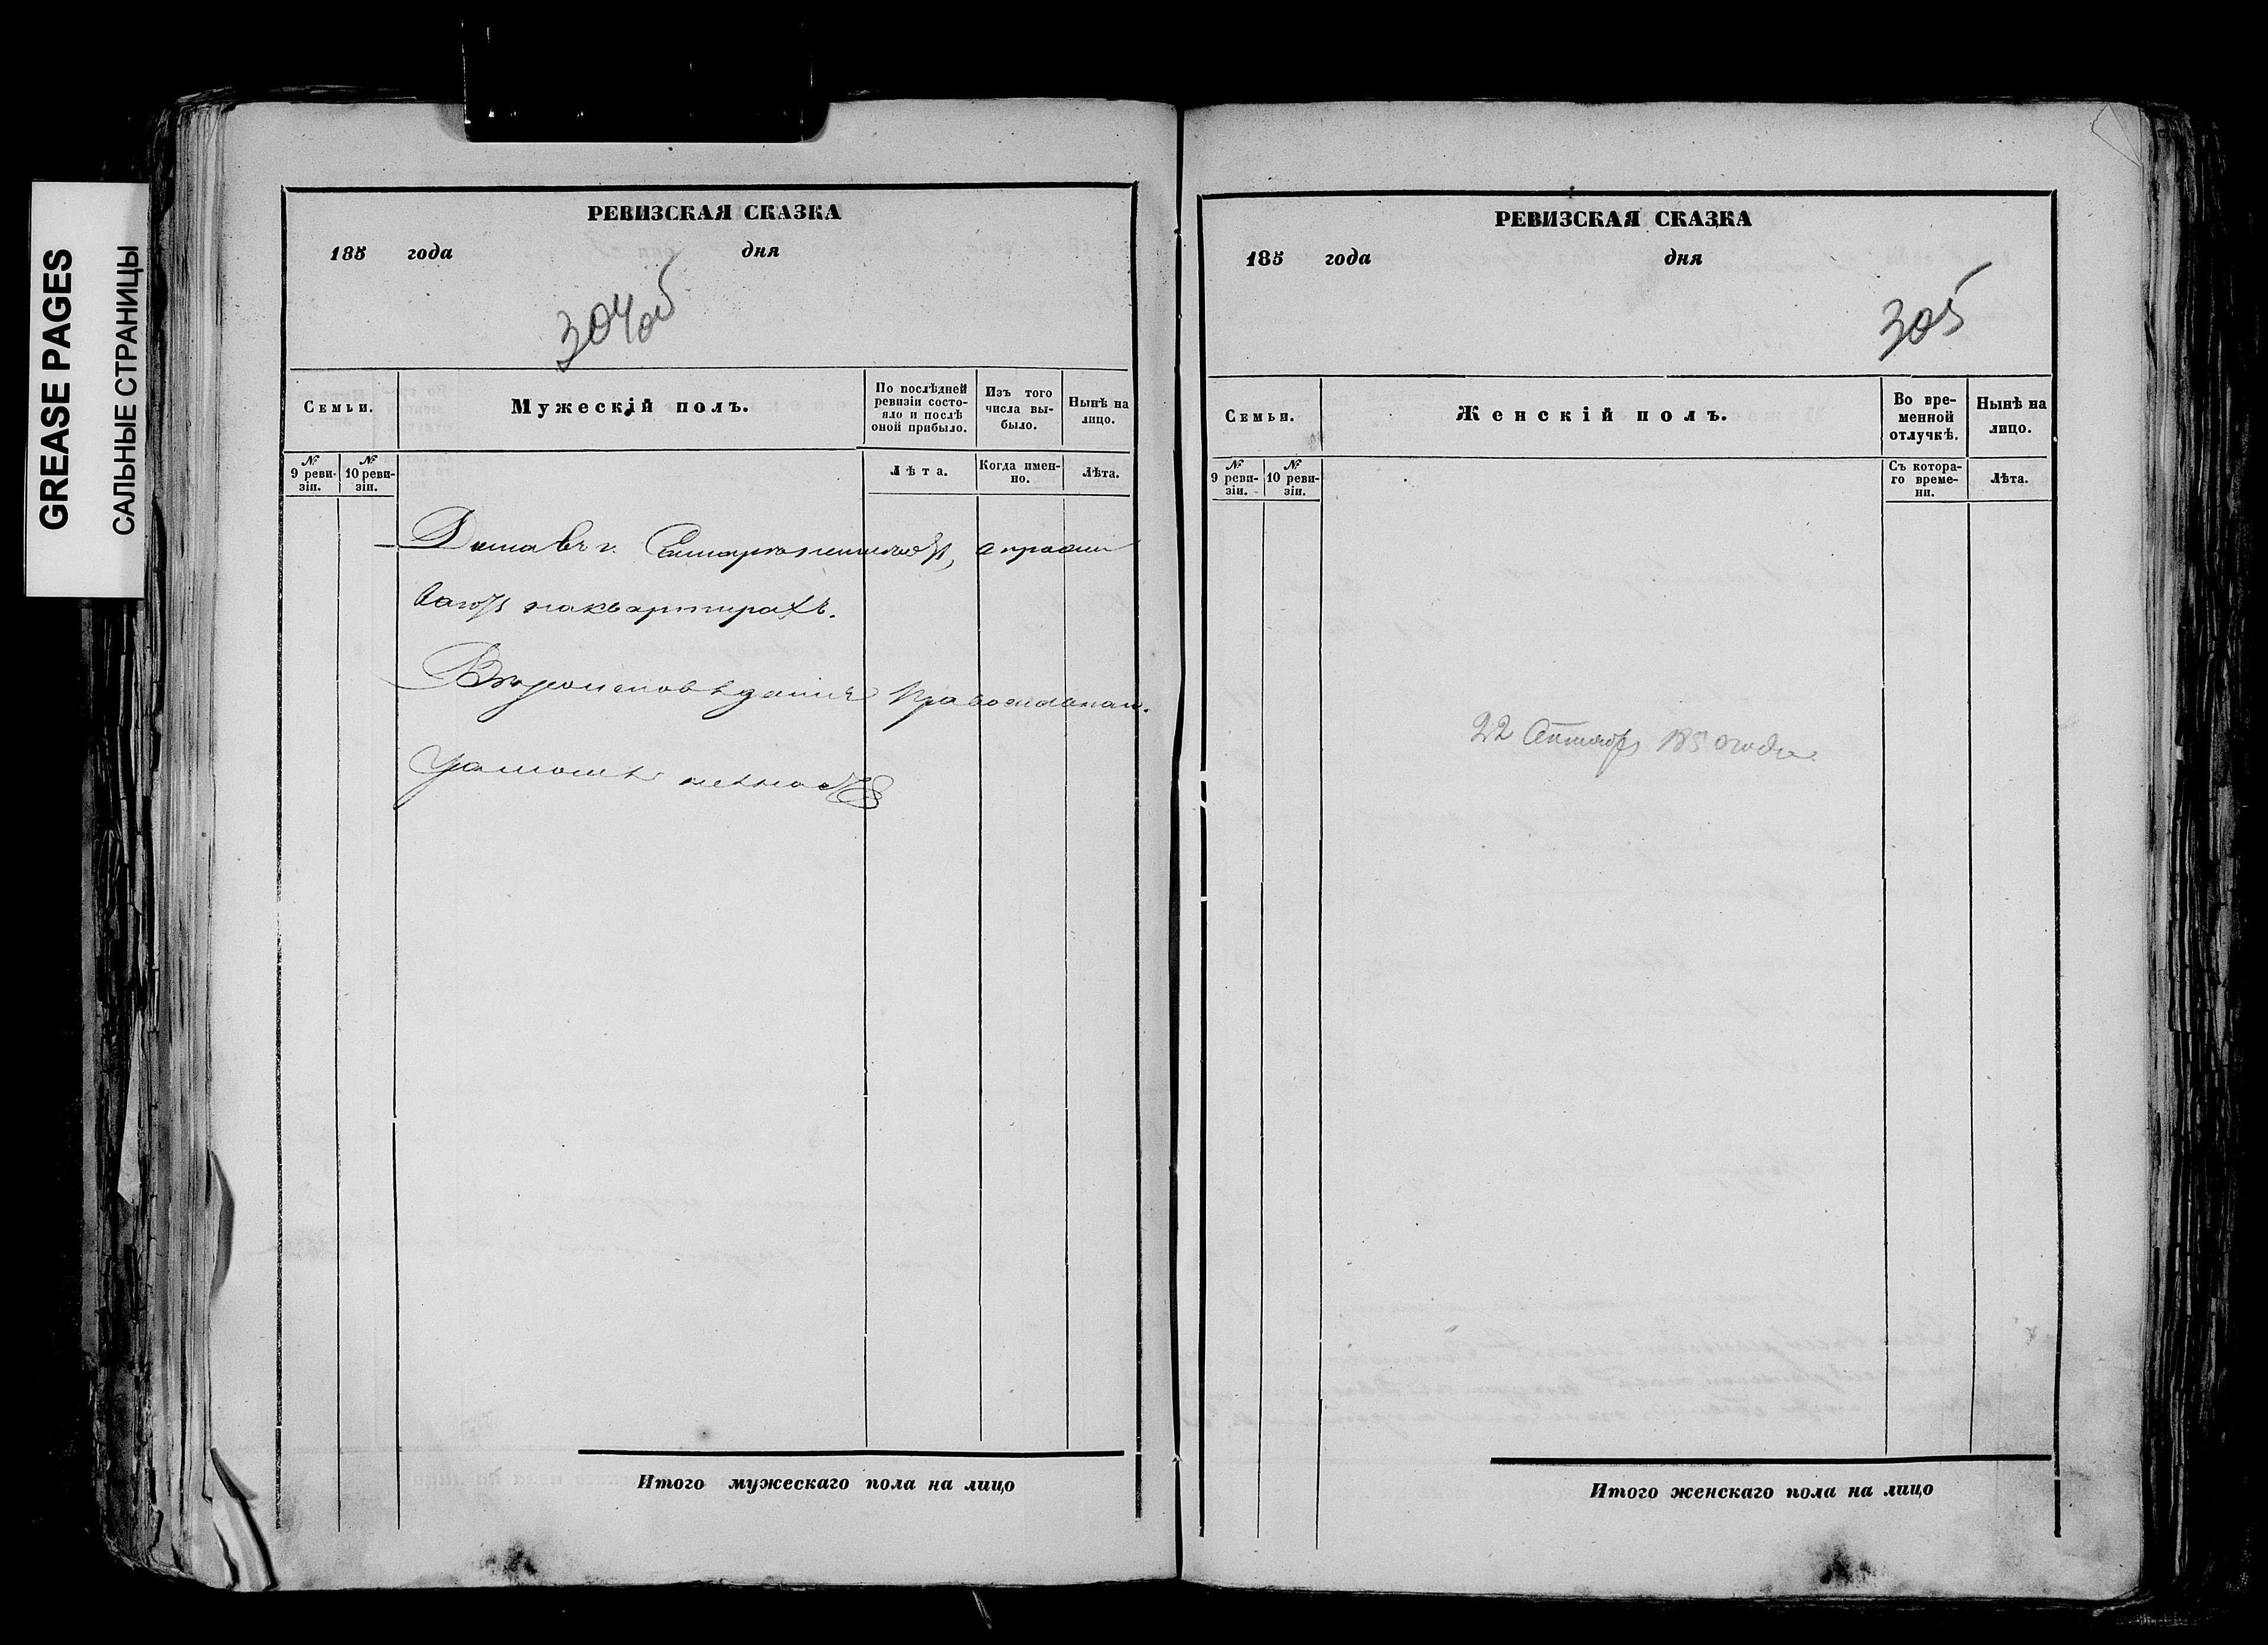 GREASE PAGES
САЛЬНЫЕ СТРАНИЦЫ
РЕВИЗСКАЯ СКАЗКА
185 года дня
304об
Семьи.
Мужескій полъ.
По послѣдней ревизіи состояло и послѣ оной прибыло.
Изъ того числа выбыло.
Нынѣ на лицо.
№ 9 ревизіи.
№ 10 ревизіи.
Лѣта.
Когда именно.
Лѣта.
Дома въ г.
на квартирахъ.
Вѣроисповѣданія православнаго.
Итого мужескаго пола на лицо
РЕВИЗСКАЯ СКАЗКА
185 года дня
305
Семьи.
Женскій полъ.
Во временной отлучкѣ.
Нынѣ на лицо.
№ 9 ревизіи.
№ 10 ревизіи.
Съ котораго времени.
Лѣта.
22 185 года
Итого женскаго пола на лицо